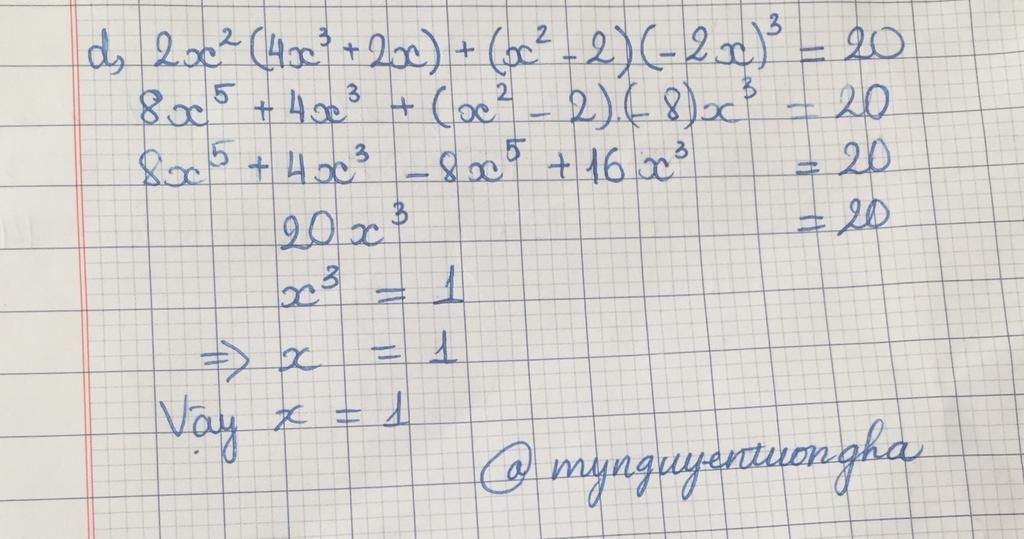 d, 2x² (4x³ + 2x) + (x² - 2) (-2x)³ = 20
8x⁵ + 4x³ + (x² - 2).(-8)x³ = 20
8x⁵ + 4x³ - 8x⁵ + 16x³ = 20
20x³ = 20
x³ = 1
=> x = 1
Vậy x = 1
@ mynguyentuongha